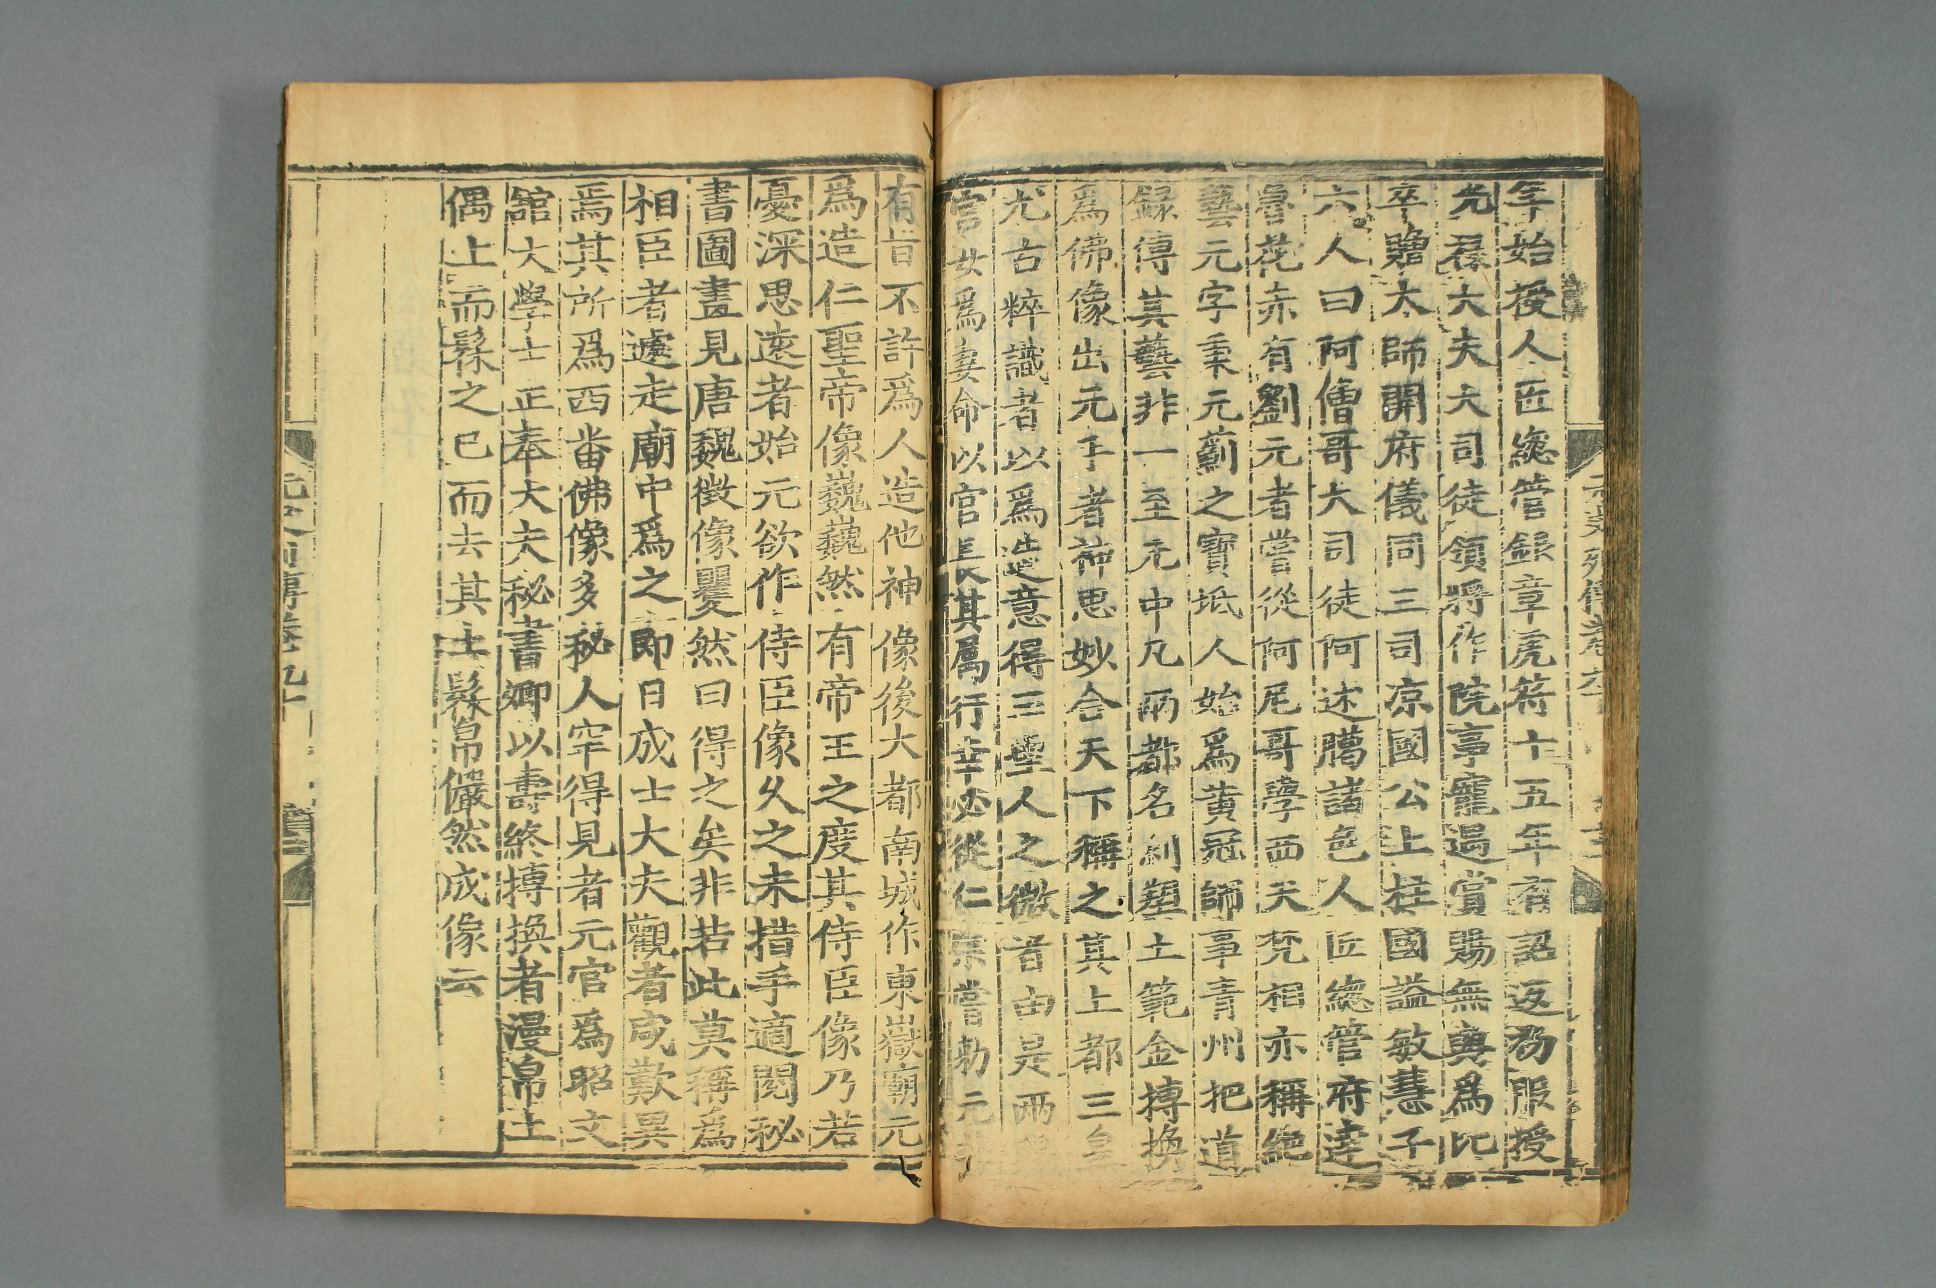 年始授人匠總管銀章虎符十五年有詔返初服授
光祿大夫大司徒領將作院事寵遇賞賜無與爲比
卒贈太師開府儀同三司凉國公上柱國謚敏慧子
六人曰阿僧哥大司徒阿述臈諸色人匠總管府達
魯花赤有劉元者嘗從阿尼哥學西天梵相亦稱絶
藝元字秉元薊之寶坻人始爲黄冠師事青州把道
錄傳其藝非一至元中凡兩都名刹塑土範金摶換
爲佛像出元手者神思妙合天下稱之其上都三皇
尤古粹識者以爲造意得三聖人之微者由是兩
宫女爲妻命以官長其屬行幸必從仁宗嘗勑元
有旨不許爲人造他神像後大都南城作東嶽廟元
爲造仁聖帝像巍巍然有帝王之度其侍臣像乃若
憂深思遠者始元欲作侍臣像久之未措手適閱秘
書圖畫見唐魏徵像矍然曰得之矣非若此莫稱爲
相臣者遽走廟中爲之即日成士大夫觀者咸歎異
焉其所爲西畨佛像多秘人罕得見者元官爲昭文
舘大學士正奉大夫秘書卿以壽終摶換者漫帛土
偶上而髹之已而去其土髹帛儼然成像云
元史列傳卷九十